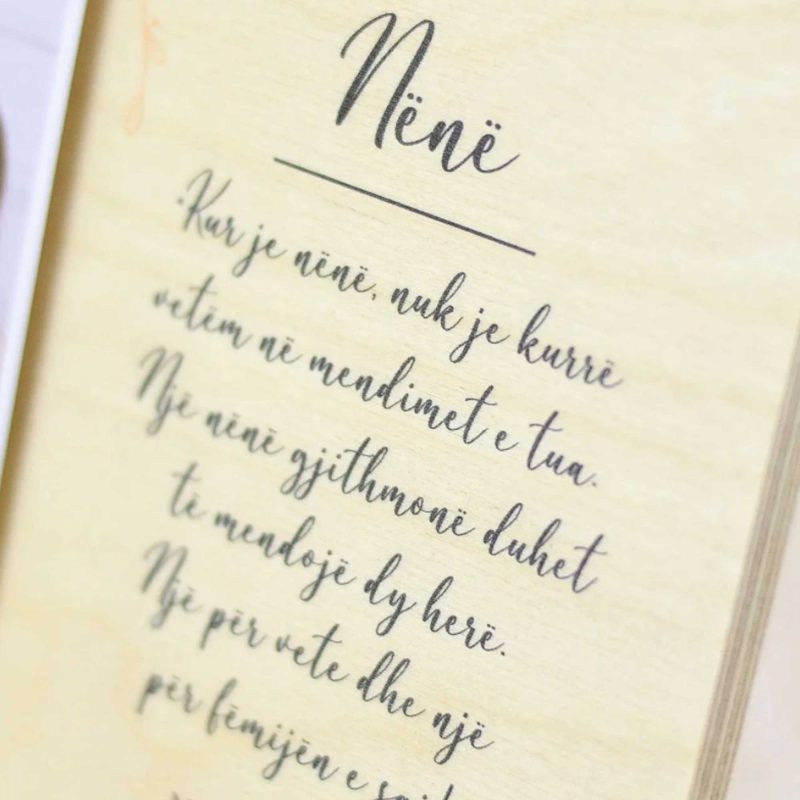 Nënë
"Kur je nënë, nuk je kurrë
vetëm në mendimet e tua.
Një nënë gjithmonë duhet
të mendojë dy herë.
Një për vete dhe një
për fëmijën e